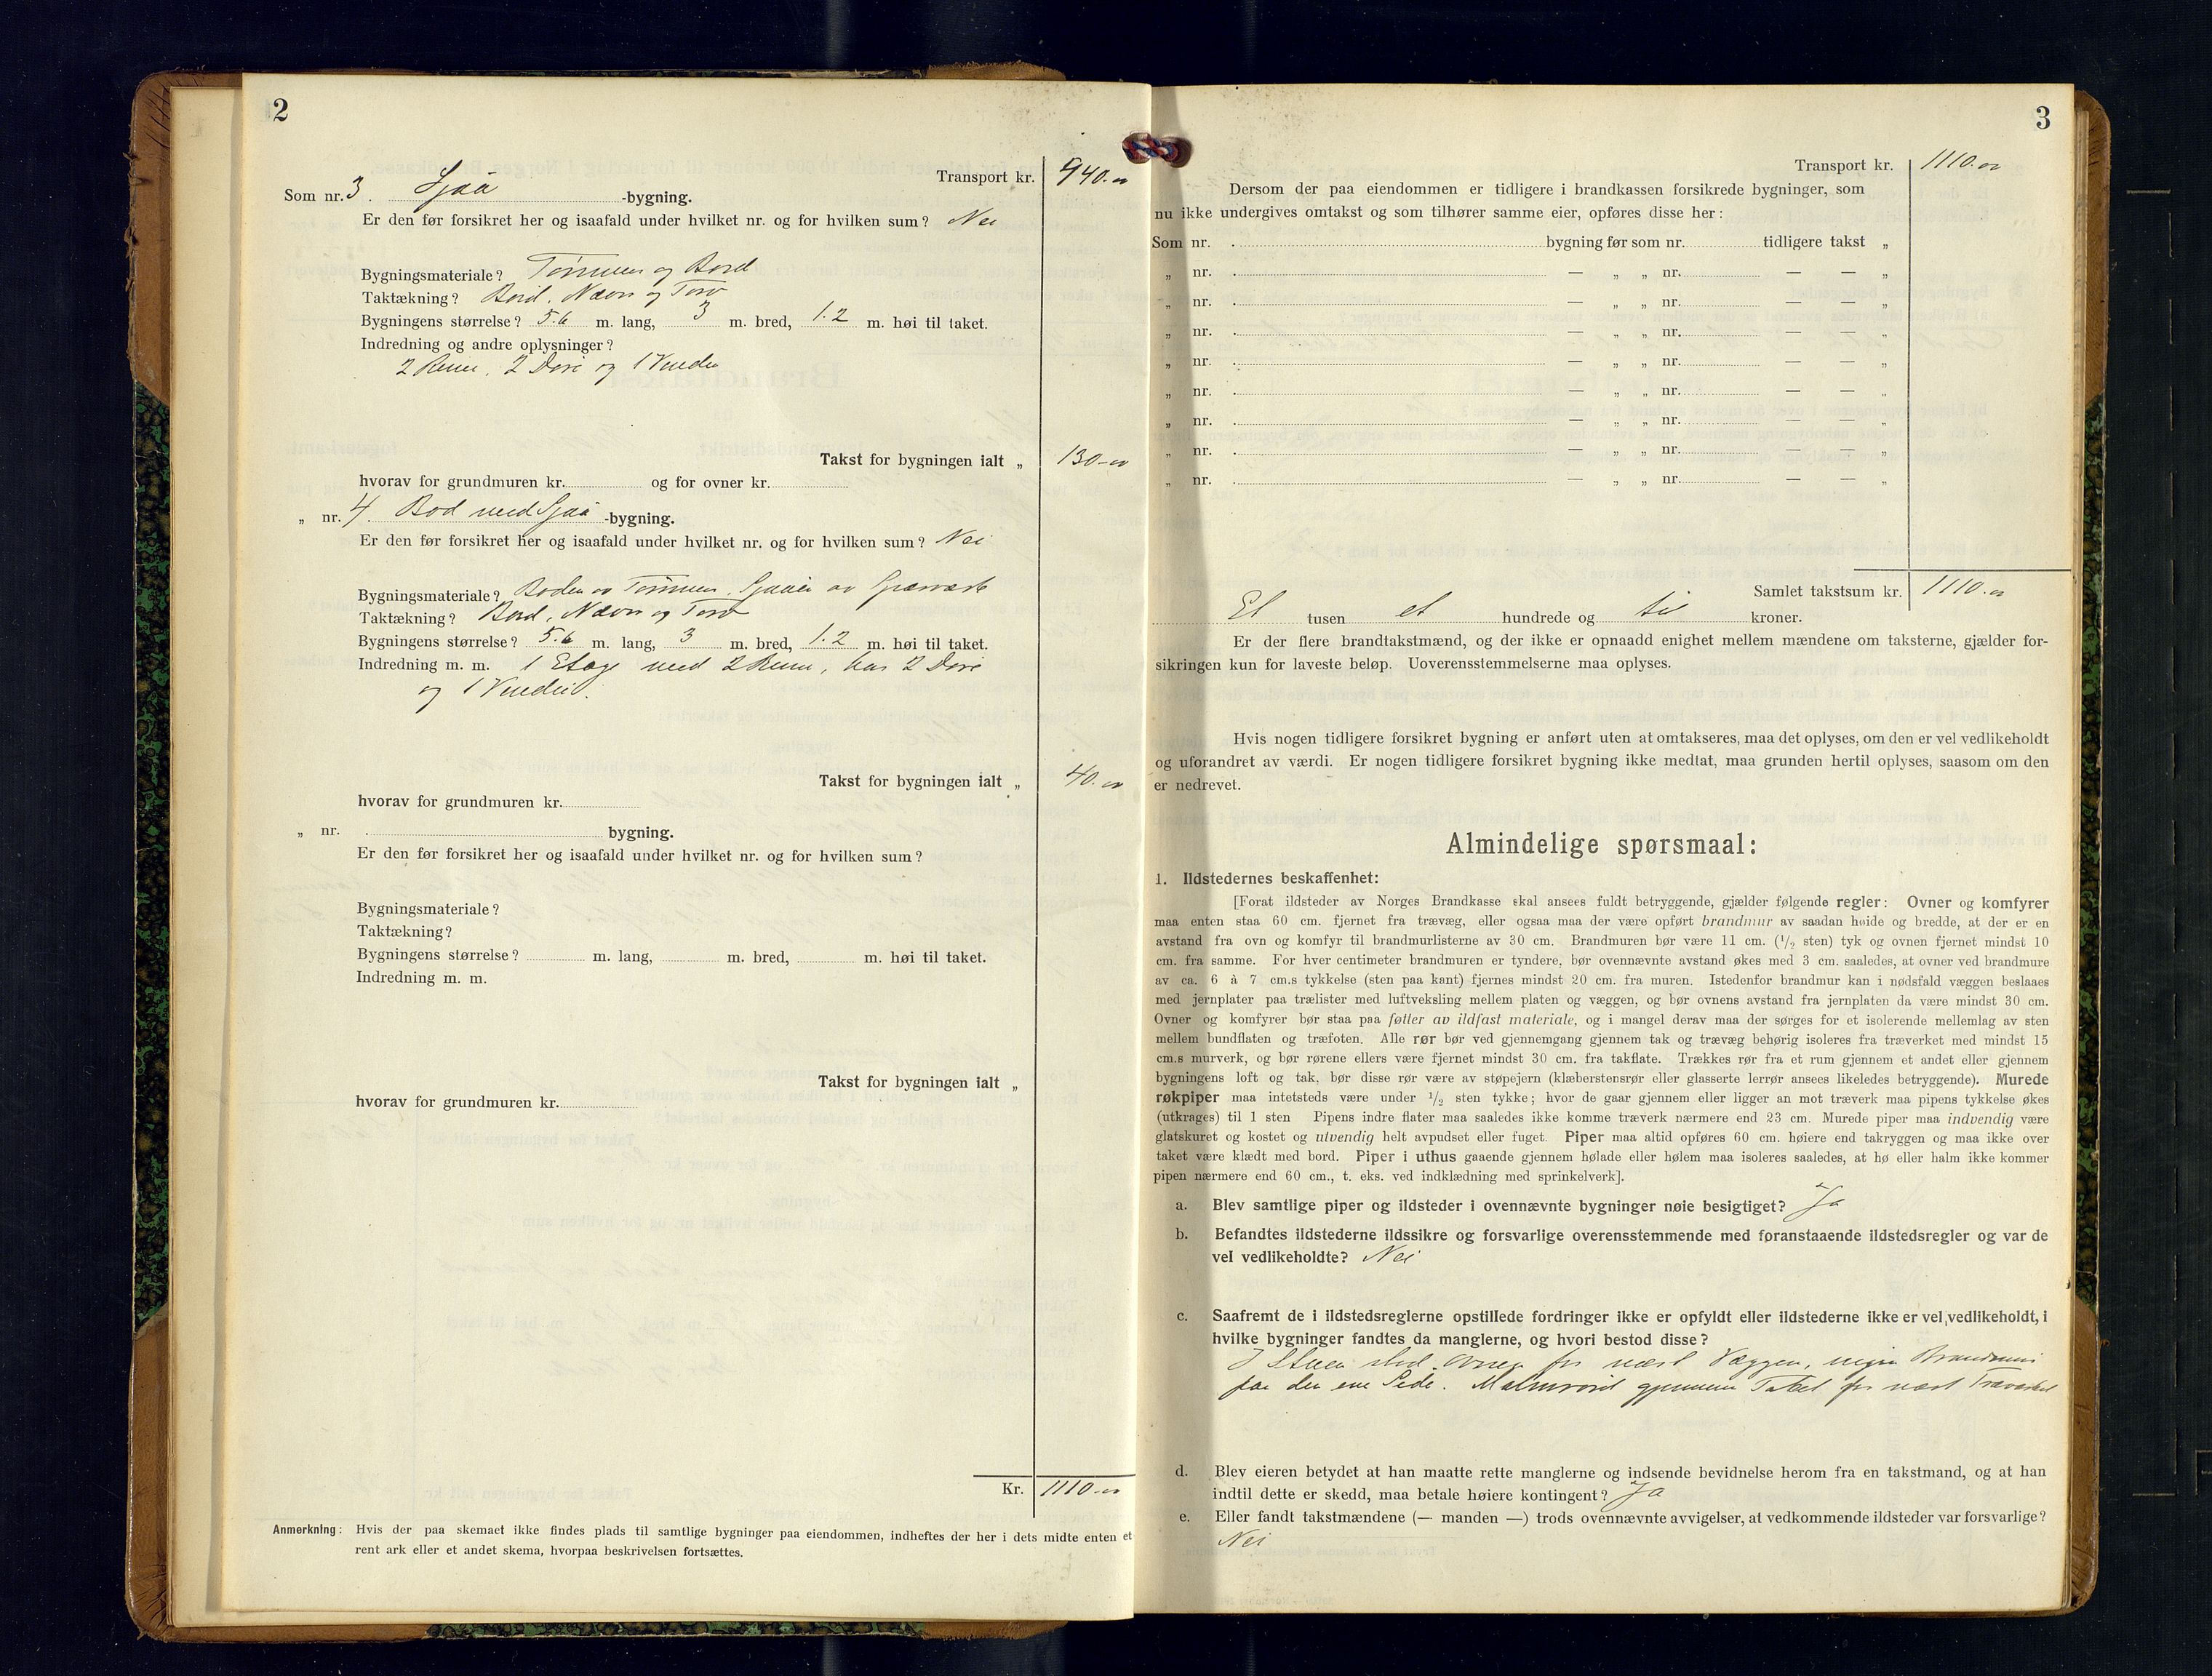 2
Transport kr. 940.-
Som nr. 3. Sjaa -bygning.
Er den før forsikret her og isaafald under hvilket nr. og for hvilken sum? Nei
Bygningsmateriale? Tømmer og Bord
Taktækning? Bord, Næver og Torv
Bygningens størrelse? 5.6 m. lang, 3 m. bred, 1.2 m. høi til taket.
Indredning og andre oplysninger?
2 Rum, 2 Døre og 1 Vindu
Takst for bygningen ialt „ 130-
hvorav for grundmuren kr. og for ovner kr.
„ nr. 4. Bod med Sjaa -bygning.
Er den før forsikret her og isaafald under hvilket nr. og for hvilken sum? Nei
Bygningsmateriale? Boden av Tømmer. Sjaaen av
Taktækning? Bord, Næver og Torv
Bygningens størrelse? 5.6 m. lang, 3 m. bred, 1.2 m. høi til taket.
Indredning m. m. 1 Etage med 2 Rum, har 2 Døre
og 1 Vindu.
Takst for bygningen ialt „ 40.-
hvorav for grundmuren kr.
„ nr. . bygning.
Er den før forsikret her og isaafald under hvilket nr. og for hvilken sum?
Bygningsmateriale?
Taktækning?
Bygningens størrelse? m. lang, m. bred, m. høi til taket.
Indredning m. m.
Takst for bygningen ialt „
hvorav for grundmuren kr.
Kr. 1110.-
Anmerkning: Hvis der paa skemaet ikke findes plads til samtlige bygninger paa eiendommen, indheftes der her i dets midte enten et
rent ark eller et andet skema, hvorpaa beskrivelsen fortsættes.
3
Transport kr. 1110.-
Dersom der paa eiendommen er tidligere i brandkassen forsikrede bygninger, som
nu ikke undergives omtakst og som tilhører samme eier, opføres disse her:
Som nr. . bygning før som nr. tidligere takst „
„ nr. . — „ „ nr. — — „
„ nr. . — „ „ nr. — — „
„ nr. . — „ „ nr. — — „
„ nr. . — „ „ nr. — — „
„ nr. . — „ „ nr. — — „
„ nr. . — „ „ nr. — — „
„ nr. . — „ „ nr. — — „
„ nr. . — „ „ nr. — — „
Samlet takstsum kr. 1110.-
Et tusen et hundrede og ti kroner.
Er der flere brandtakstmænd, og der ikke er opnaadd enighet mellem mændene om taksterne, gjælder for-
sikringen kun for laveste beløp. Uoverensstemmelserne maa oplyses.
Hvis nogen tidligere forsikret bygning er anført uten at omtakseres, maa det oplyses, om den er vel vedlikeholdt
og uforandret av værdi. Er nogen tidligere forsikret bygning ikke medtat, maa grunden hertil oplyses, saasom om den
er nedrevet.
Almindelige spørsmaal:
1. Ildstedernes beskaffenhet:
[Forat ildsteder av Norges Brandkasse skal ansees fuldt betryggende, gjælder følgende regler: Ovner og komfyrer
maa enten staa 60 cm. fjernet fra trævæg, eller ogsaa maa der være opført brandmur av saadan høide og bredde, at der er en
avstand fra ovn og komfyr til brandmurlisterne av 30 cm. Brandmuren bør være 11 cm. (1/2 sten) tyk og ovnen fjernet mindst 10
cm. fra samme. For hver centimeter brandmuren er tyndere, bør ovennævnte avstand økes med 3 cm. saaledes, at ovner ved brandmure
av ca. 6 à 7 cm.s tykkelse (sten paa kant) fjernes mindst 20 cm. fra muren. Istedenfor brandmur kan i nødsfald væggen beslaaes
med jernplater paa trælister med luftveksling mellem platen og væggen, og bør ovnens avstand fra jernplaten da være mindst 30 cm.
Ovner og komfyrer bør staa paa føtter av ildfast materiale, og i mangel derav maa der sørges for et isolerende mellemlag av sten
mellem bundflaten og træfoten. Alle rør bør ved gjennemgang gjennem tak og trævæg behørig isoleres fra træverket med mindst 15
cm.s murverk, og bør rørene ellers være fjernet mindst 30 cm. fra takflate. Trækkes rør fra et rum gjennem et andet eller gjennem
bygningens loft og tak, bør disse rør være av støpejern (klæberstensrør eller glasserte lerrør ansees likeledes betryggende). Murede
røkpiper maa intetsteds være under 1/2 sten tykke; hvor de gaar gjennem eller ligger an mot træverk maa pipens tykkelse økes
(utkrages) til 1 sten Pipens indre flater maa saaledes ikke komme træverk nærmere end 23 cm. Murede piper maa indvendig være
glatskuret og kostet og utvendig helt avpudset eller fuget. Piper maa altid opføres 60 cm. høiere end takryggen og maa ikke over
taket være klædt med bord. Piper i uthus gaaende gjennem hølade eller hølem maa isoleres saaledes, at hø eller halm ikke kommer
pipen nærmere end 60 cm., t. eks. ved indklædning med sprinkelverk].
a. Blev samtlige piper og ildsteder i ovennævnte bygninger nøie besigtiget? Ja
b. Befandtes ildstederne ildssikre og forsvarlige overensstemmende med foranstaaende ildstedsregler og var de
vel vedlikeholdte? Nei
c. Saafremt de i ildstedsreglerne opstillede fordringer ikke er opfyldt eller ildstederne ikke er vel vedlikeholdt, i
hvilke bygninger fandtes da manglerne, og hvori bestod disse?
I Stuen stod Ovnen for nært Væggen, ingen Brandmur
paa den ene Side. Malmrøret gjennem Taket for nært Træverket
d. Blev eieren betydet at han maatte rette manglerne og indsende bevidnelse herom fra en takstmand, og at han
indtil dette er skedd, maa betale høiere kontingent? Ja
e. Eller fandt takstmændene (— manden —) trods ovennævnte avvigelser, at vedkommende ildsteder var forsvarlige?
Nei